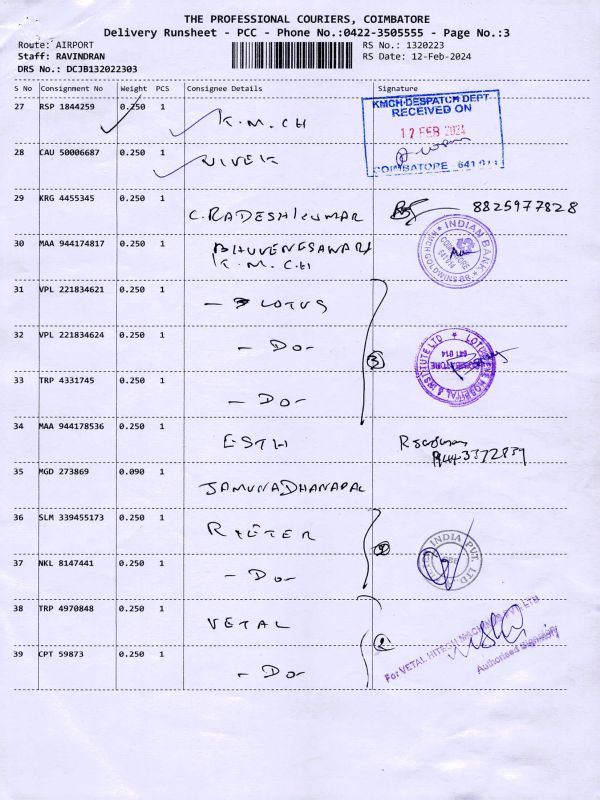 THE PROFESSIONAL COURIERS, COIMBATORE
Delivery Runsheet - PCC - Phone No.:0422-3505555 - Page No.:3
Route: AIRPORT RS No.: 1320223
Staff: RAVINDRAN RS Date: 12-Feb-2024
DRS No.: DCJB132022303
S No Consignment No Weight PCS Consignee Details Signature
27 RSP 1844259 0.250 1 K.M.CH
KMCH-DESPATCH DEPT
RECEIVED ON
12 FEB 2024
COIMBATORE - 641 014
28 CAU 50006687 0.250 1 VIVEK
29 KRG 4455345 0.250 1 C.RADESHKUMAR 8825977828
30 MAA 944174817 0.250 1 BHUVENESAWARI
K.M.C.H
INDIAN BANK
KMCH GOLDWINS BR.
COIMBATORE
641 014
31 VPL 221834621 0.250 1 - LOTUS
32 VPL 221834624 0.250 1 - Do - 3
LOTUS EYE HOSPITAL & INSTITUTE LTD
COIMBATORE
641 014
33 TRP 4331745 0.250 1 - Do -
34 MAA 944178536 0.250 1 ESTH
35 MGD 273869 0.090 1 JAMUNADHANAPAL
36 SLM 339455173 0.250 1
INDIA PVT. LTD.
37 NKL 8147441 0.250 1 - Do - 2
38 TRP 4970848 0.250 1 VETAL 2
For VETAL HITECH MACHINES PVT LTD
Authorised Signatory
39 CPT 59873 0.250 1 - Do -